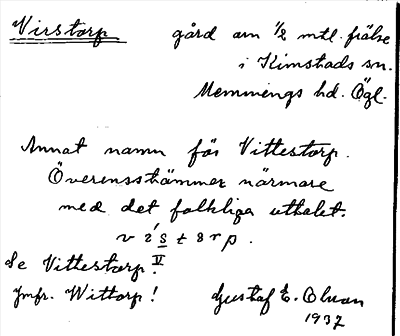 Virstorp gård om 1/2 mtl. frälse
i Kimstads sn.
Memmings hd. Ögl.
Annat namn för Vittestorp.
Överensstämmer närmare
med det folkliga uttalet.
Se Vittestorp. II
Jmfr. Wittorp!
Gustaf E. Olsson
1937